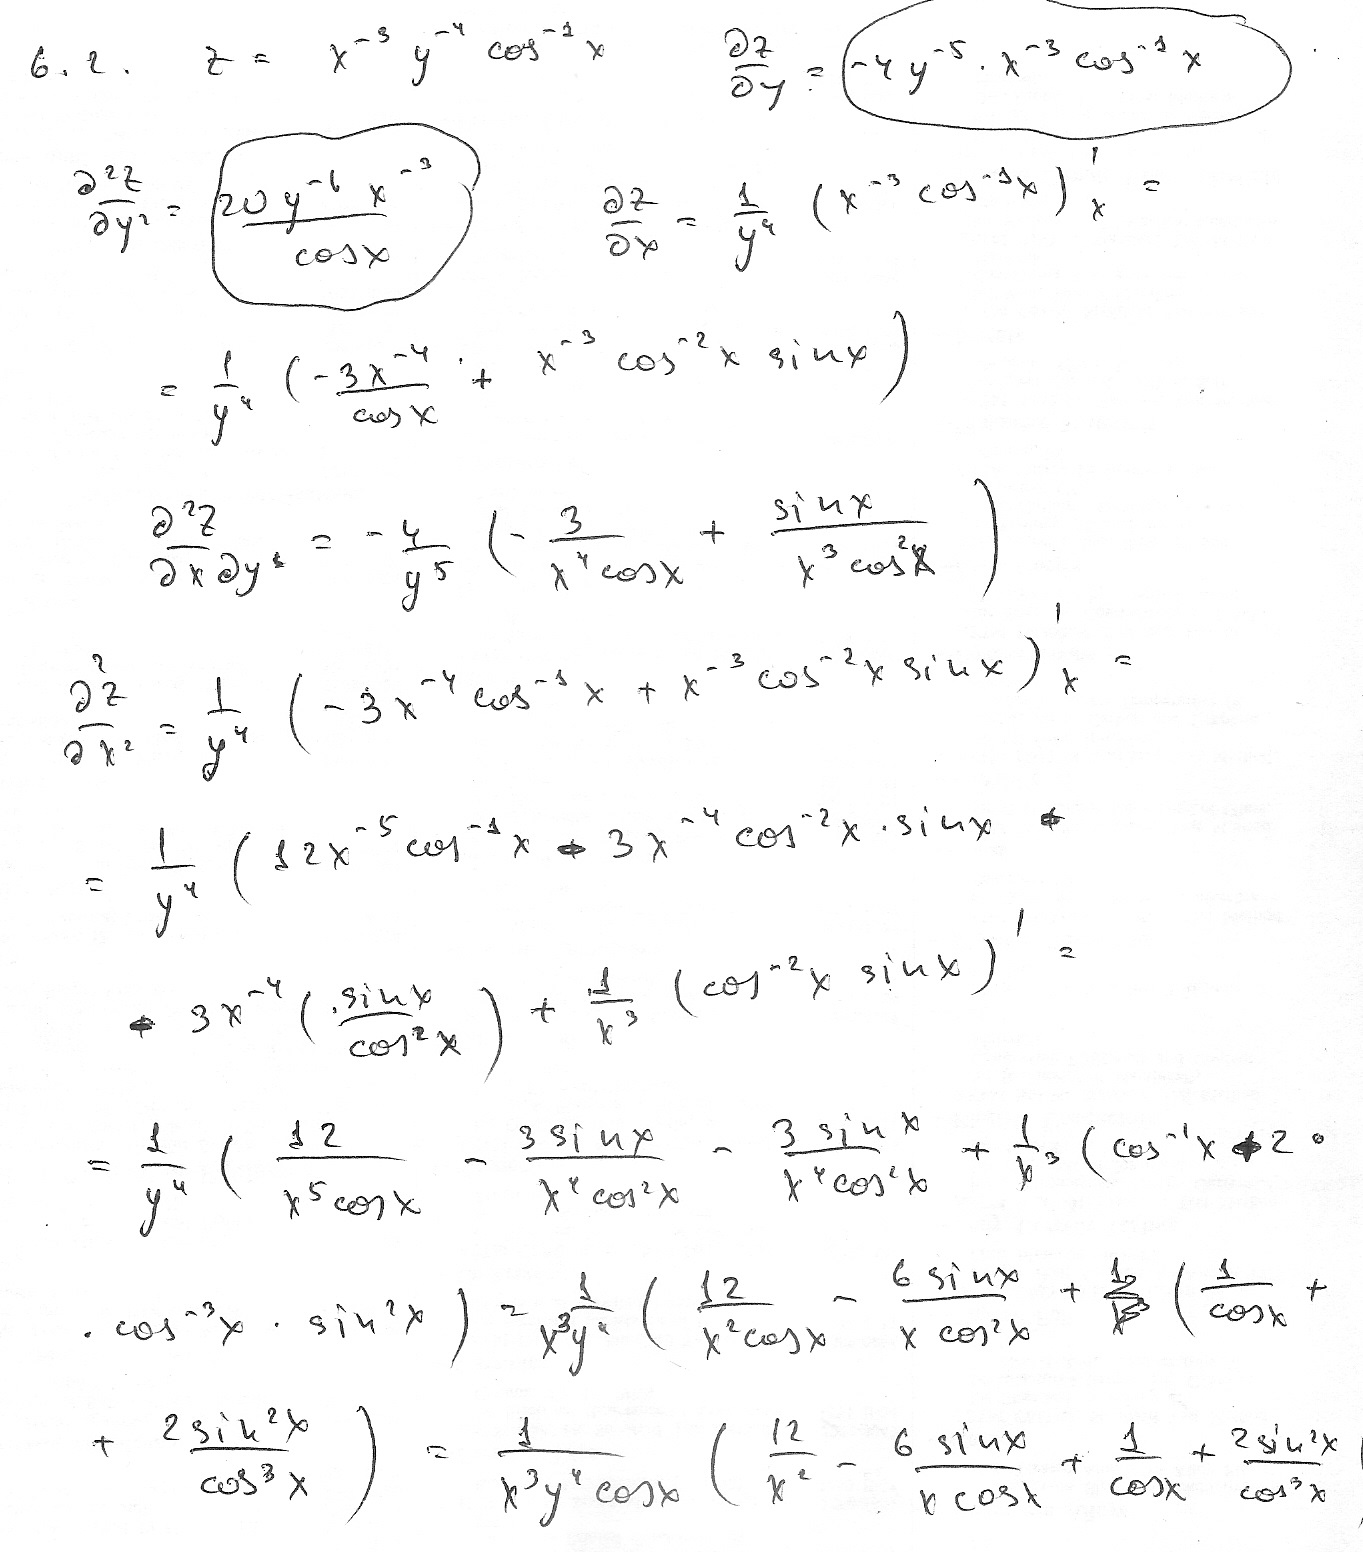 6.2. z = x⁻³ y⁻⁴ cos⁻¹x ∂z/∂y = -4y⁻⁵ · x⁻³ cos⁻¹x
∂²z/∂y² = 20y⁻⁶ x⁻³/cosx ∂z/∂x = 1/y⁴ (x⁻³ cos⁻¹x)'ₓ =
= 1/y⁴ (-3x⁻⁴/cosx + x⁻³ cos⁻²x sinx)
∂²z/∂x∂y = -4/y⁵ (-3/(x⁴cosx) + sinx/(x³cos²x))
∂²z/∂x² = 1/y⁴ (-3x⁻⁴cos⁻¹x + x⁻³cos⁻²x sinx)'ₓ =
= 1/y⁴ (12x⁻⁵cos⁻¹x - 3x⁻⁴cos⁻²x · sinx -
- 3x⁻⁴(sinx/cos²x) + 1/x³ (cos⁻²x sinx)' =
= 1/y⁴ (12/(x⁵cosx) - 3sinx/(x⁴cos²x) - 3sinx/(x⁴cos²x) + 1/x³ (cos⁻¹x + 2 ·
· cos⁻³x · sin²x) = 1/(x³y⁴) (12/(x²cosx) - 6sinx/(x cos²x) + (1/cosx +
+ 2sin²x/cos³x) = 1/(x³y⁴cosx) (12/x² - 6sinx/(x cosx) + 1/cosx + 2sin²x/cos³x)